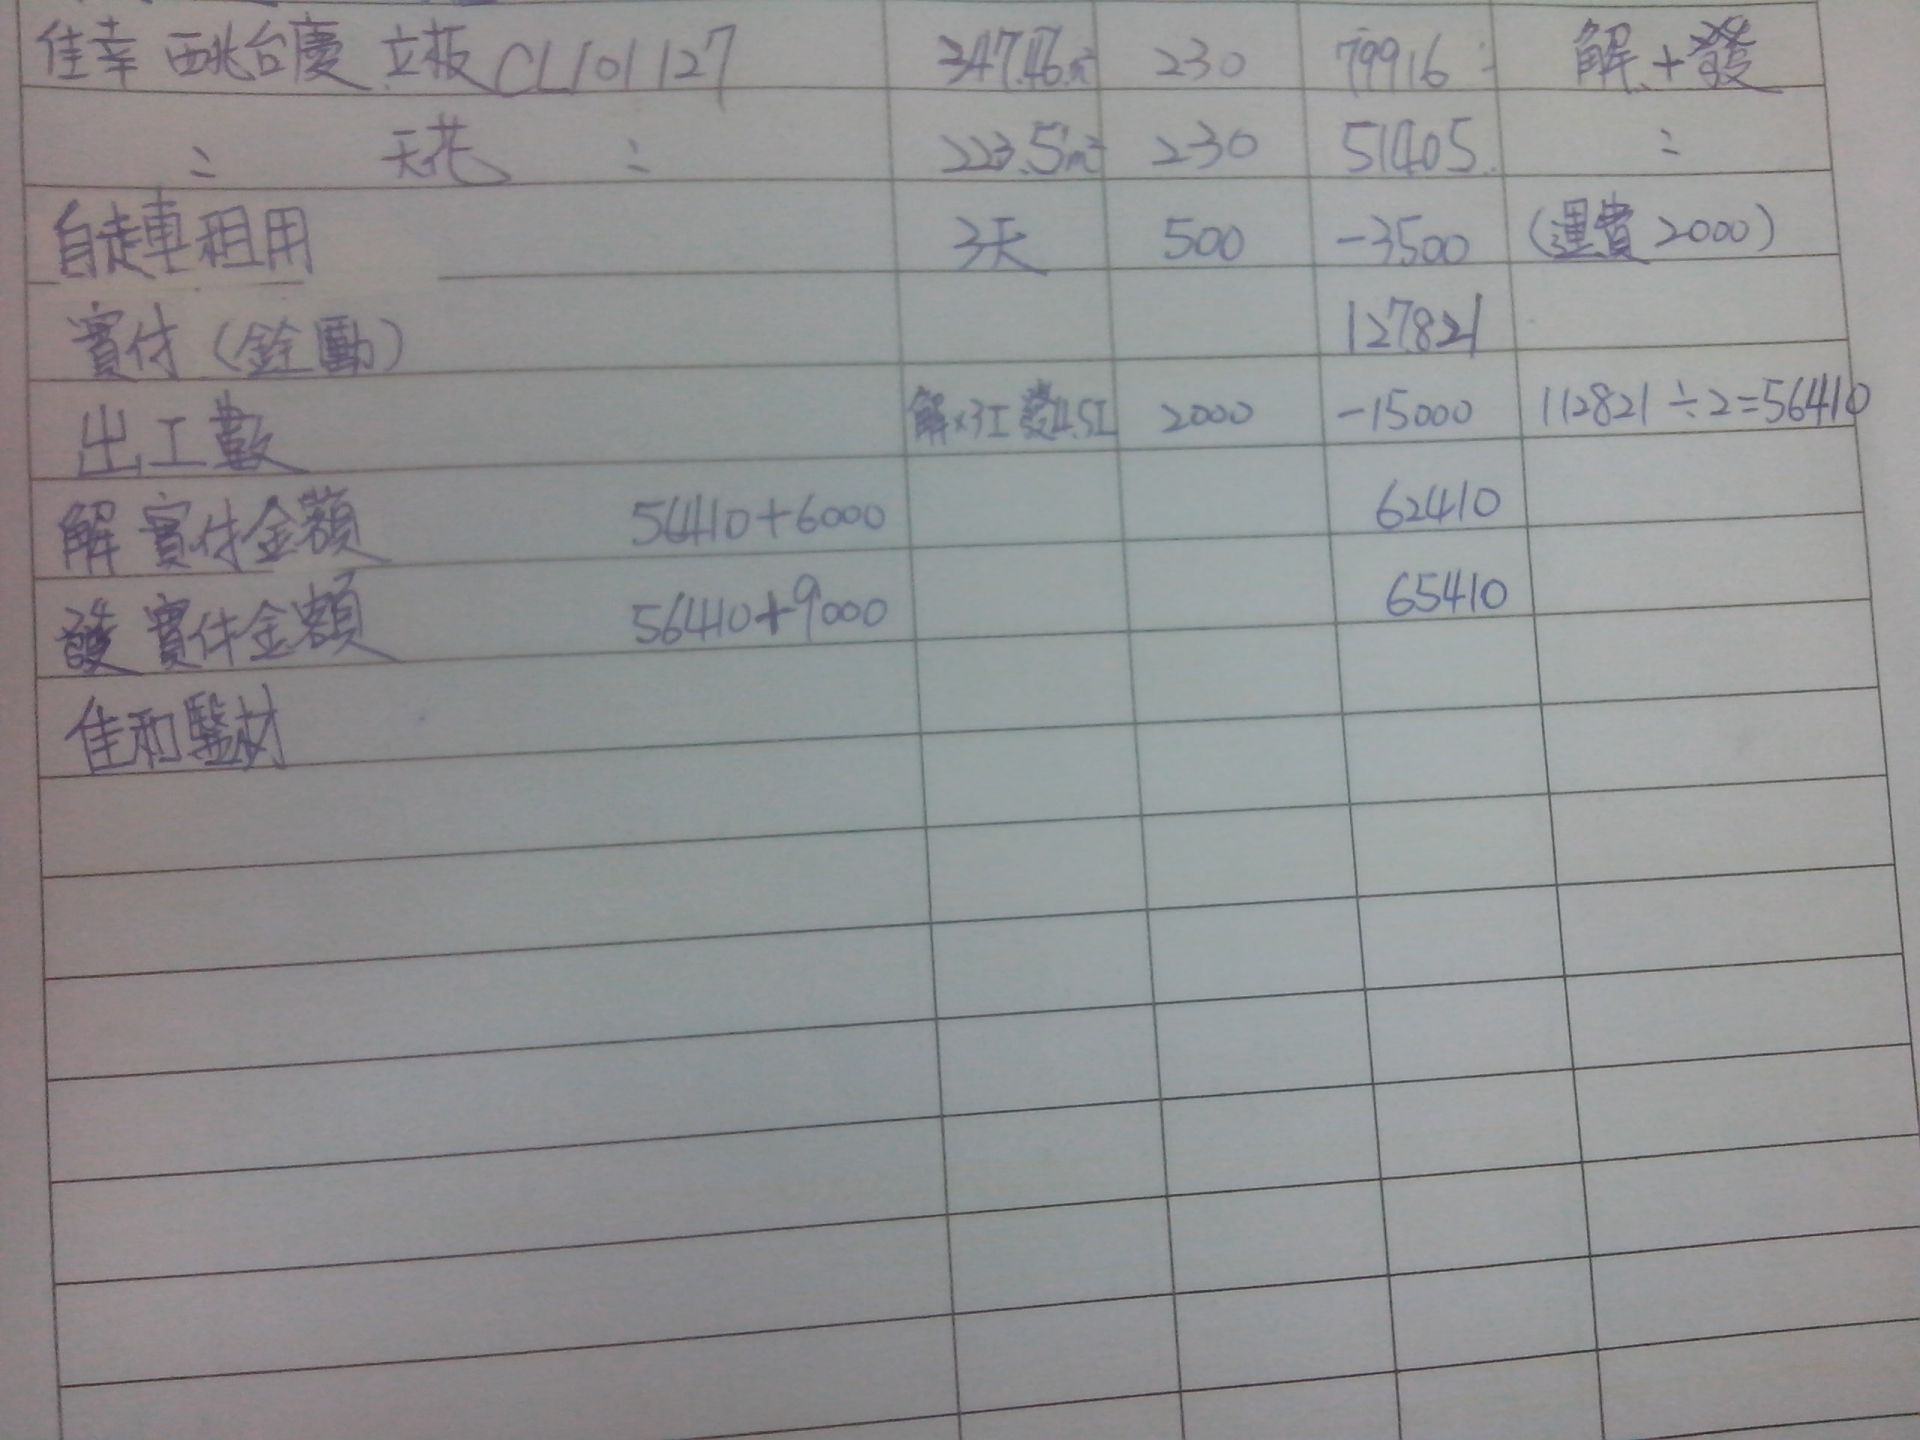 佳幸 西兆台慶 立板 CL101127 347.46m² 230 79916 解+發
〃 天花 〃 223.5m² 230 51405 〃
自走車租用 3天 500 -3500 (運費 2000)
實付 (銓勳) 127821
出工數 解×3工 發4.5工 2000 -15000 112821÷2=56410
解 實付金額 56410+6000 62410
發 實付金額 56410+9000 65410
佳和醫材